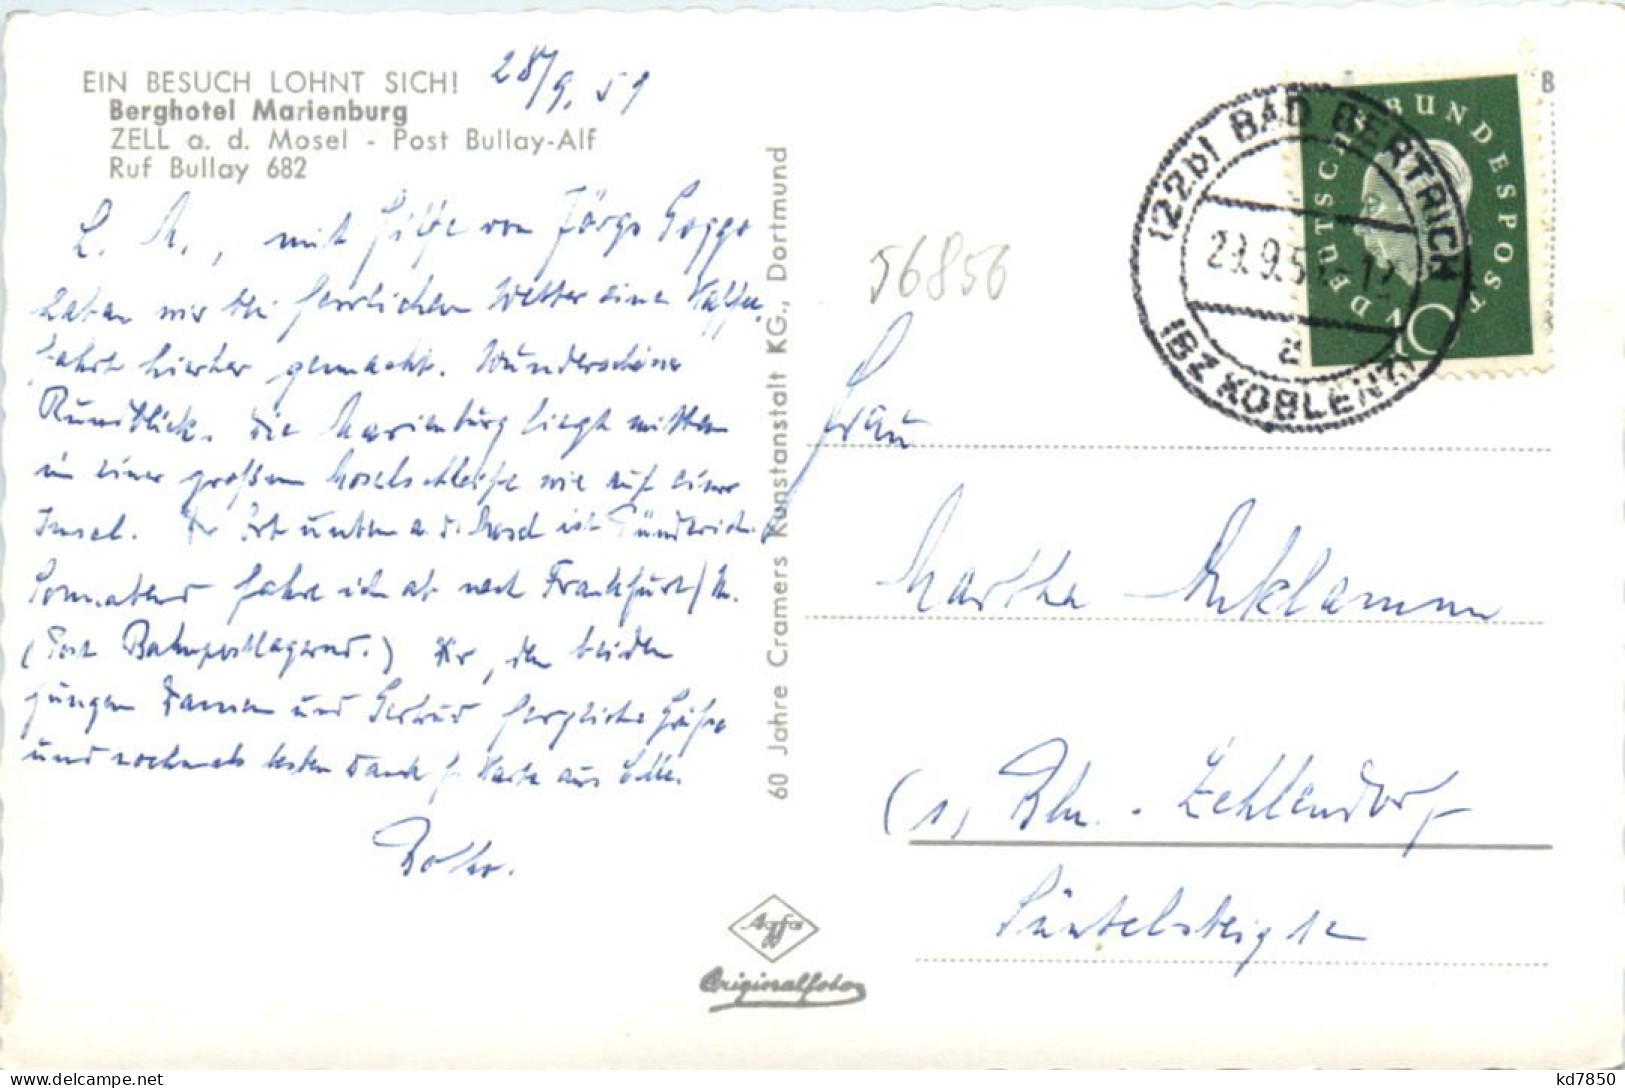 EIN BESUCH LOHNT SICH!
Berghotel Marienburg
ZELL a. d. Mosel - Post Bullay-Alf
Ruf Bullay 682
28/9. 59
L. M., mit Hilfe von Jörgs Goggo
haben wir bei herrlichem Wetter eine Kaffee-
fahrt hierher gemacht. Wunderschöner
Rundblick. Die Marienburg liegt mitten
in einer großen Moselschleife wie auf einer
Insel. Der Ort unten a. d. Mosel ist Pünderich.
Sonnabend fahre ich ab nach Frankfurt/M.
(Post Bahnpostlagernd.) Dir, den beiden
jungen Damen und Gertrud herzliche Grüße
und nochmals besten Dank f. Karte aus
60 Jahre Cramers Kunstanstalt KG., Dortmund
Agfa
Originalfoto
56856
(22b) BAD BERTRICH
29.9.59-12
a
(BZ KOBLENZ)
DEUTSCHE BUNDESPOST
10
B
Frau
Martha
(1) Bln.-Zehlendorf
Süntelsteig 12
kd7850